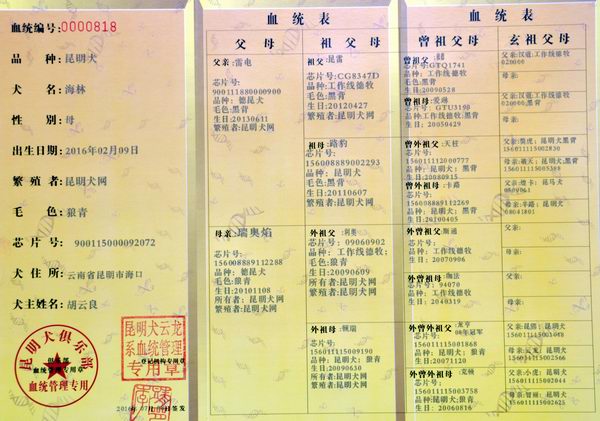 血统编号:0000818
品 种:昆明犬
犬 名:海林
性 别:母
出生日期:2016年02月09日
繁殖者:昆明犬网
毛 色:狼青
芯片号: 900115000092072
犬住所:云南省昆明市海口
犬主姓名:胡云良
昆明犬俱乐部
血统管理专用
昆明犬云龙
系血统管理
专用章
血统表
父母
祖父母
父亲:雷电
芯片号:
900111880000900
品种: 德昆犬
毛色:黑背
生日:20130611
繁殖者:昆明犬网
母亲:瑞奥焰
芯片号:
156008889112288
品种: 德昆犬
毛色:狼青
生日:20101108
所有者:昆明犬网
繁殖者:昆明犬网
祖父:昆雷
芯片号:CG8347D
品种:工作线德牧
毛色:黑背
生日:20120427
繁殖者:昆明犬网
祖母:路豹
芯片号:
156008889002293
品种:昆明犬
毛色:黑背
生日:20110607
繁殖者:昆明犬网
外祖父:利奥
芯片号: 09060902
品种: 工作线德牧;
毛色:狼青
生日:20090609
所有者:昆明犬网
繁殖者:昆明犬网
外祖母:顿瑞
芯片号:
156011115009190
品种: 昆明犬; 狼青
生日:20090630
所有者:昆明犬网
繁殖者:昆明犬网
血统表
曾祖父母
玄祖父母
曾祖父:
芯片号:GTQ1741
品种:工作线德牧
毛色:黑背
生日:20090528
曾祖母:爱琳
芯片号: GTU3198
品种:工作线德牧;黑背
生日: 20050429
曾外祖父:天柱
芯片号:
156011112000777
品种: 昆明犬;黑背
生日:20080915
曾外祖母:卡路
芯片号:
156008889112269
品种: 昆明犬; 黑背
生日:20100405
外曾祖父:斯通
芯片号:
品种: 工作线德牧
生日: 20070906
外曾祖母:伽法
芯片号: 94070
品种: 工作线德牧
生日: 2040319
外曾外祖父:龙亨
08年冠军
芯片号:
156011115001868
品种: 昆明犬; 狼青
生日: 20071120
外曾外祖母:克顿
芯片号:
156011115003758
品种:昆明犬; 狼青
生日: 20060816
父亲:汉道:工作线德牧
020000
母亲:
父亲:汉道:工作线德牧
020000;黑背
母亲:
父亲:昆虎: 昆明犬黑背
156011115002830
母亲:破天; 昆明犬;黑背
156011115005388
父亲:煌卡: 昆马犬
母亲:辛路: 昆明犬
08041801
父亲:
母亲:
父亲:
母亲:
父亲:昆郎: 昆明犬
156011115001568
母亲:云龙: 昆明犬
156011115002007
父亲:小虎; 昆明犬
156011115002044
母亲:智丽; 昆明犬
156011115002625